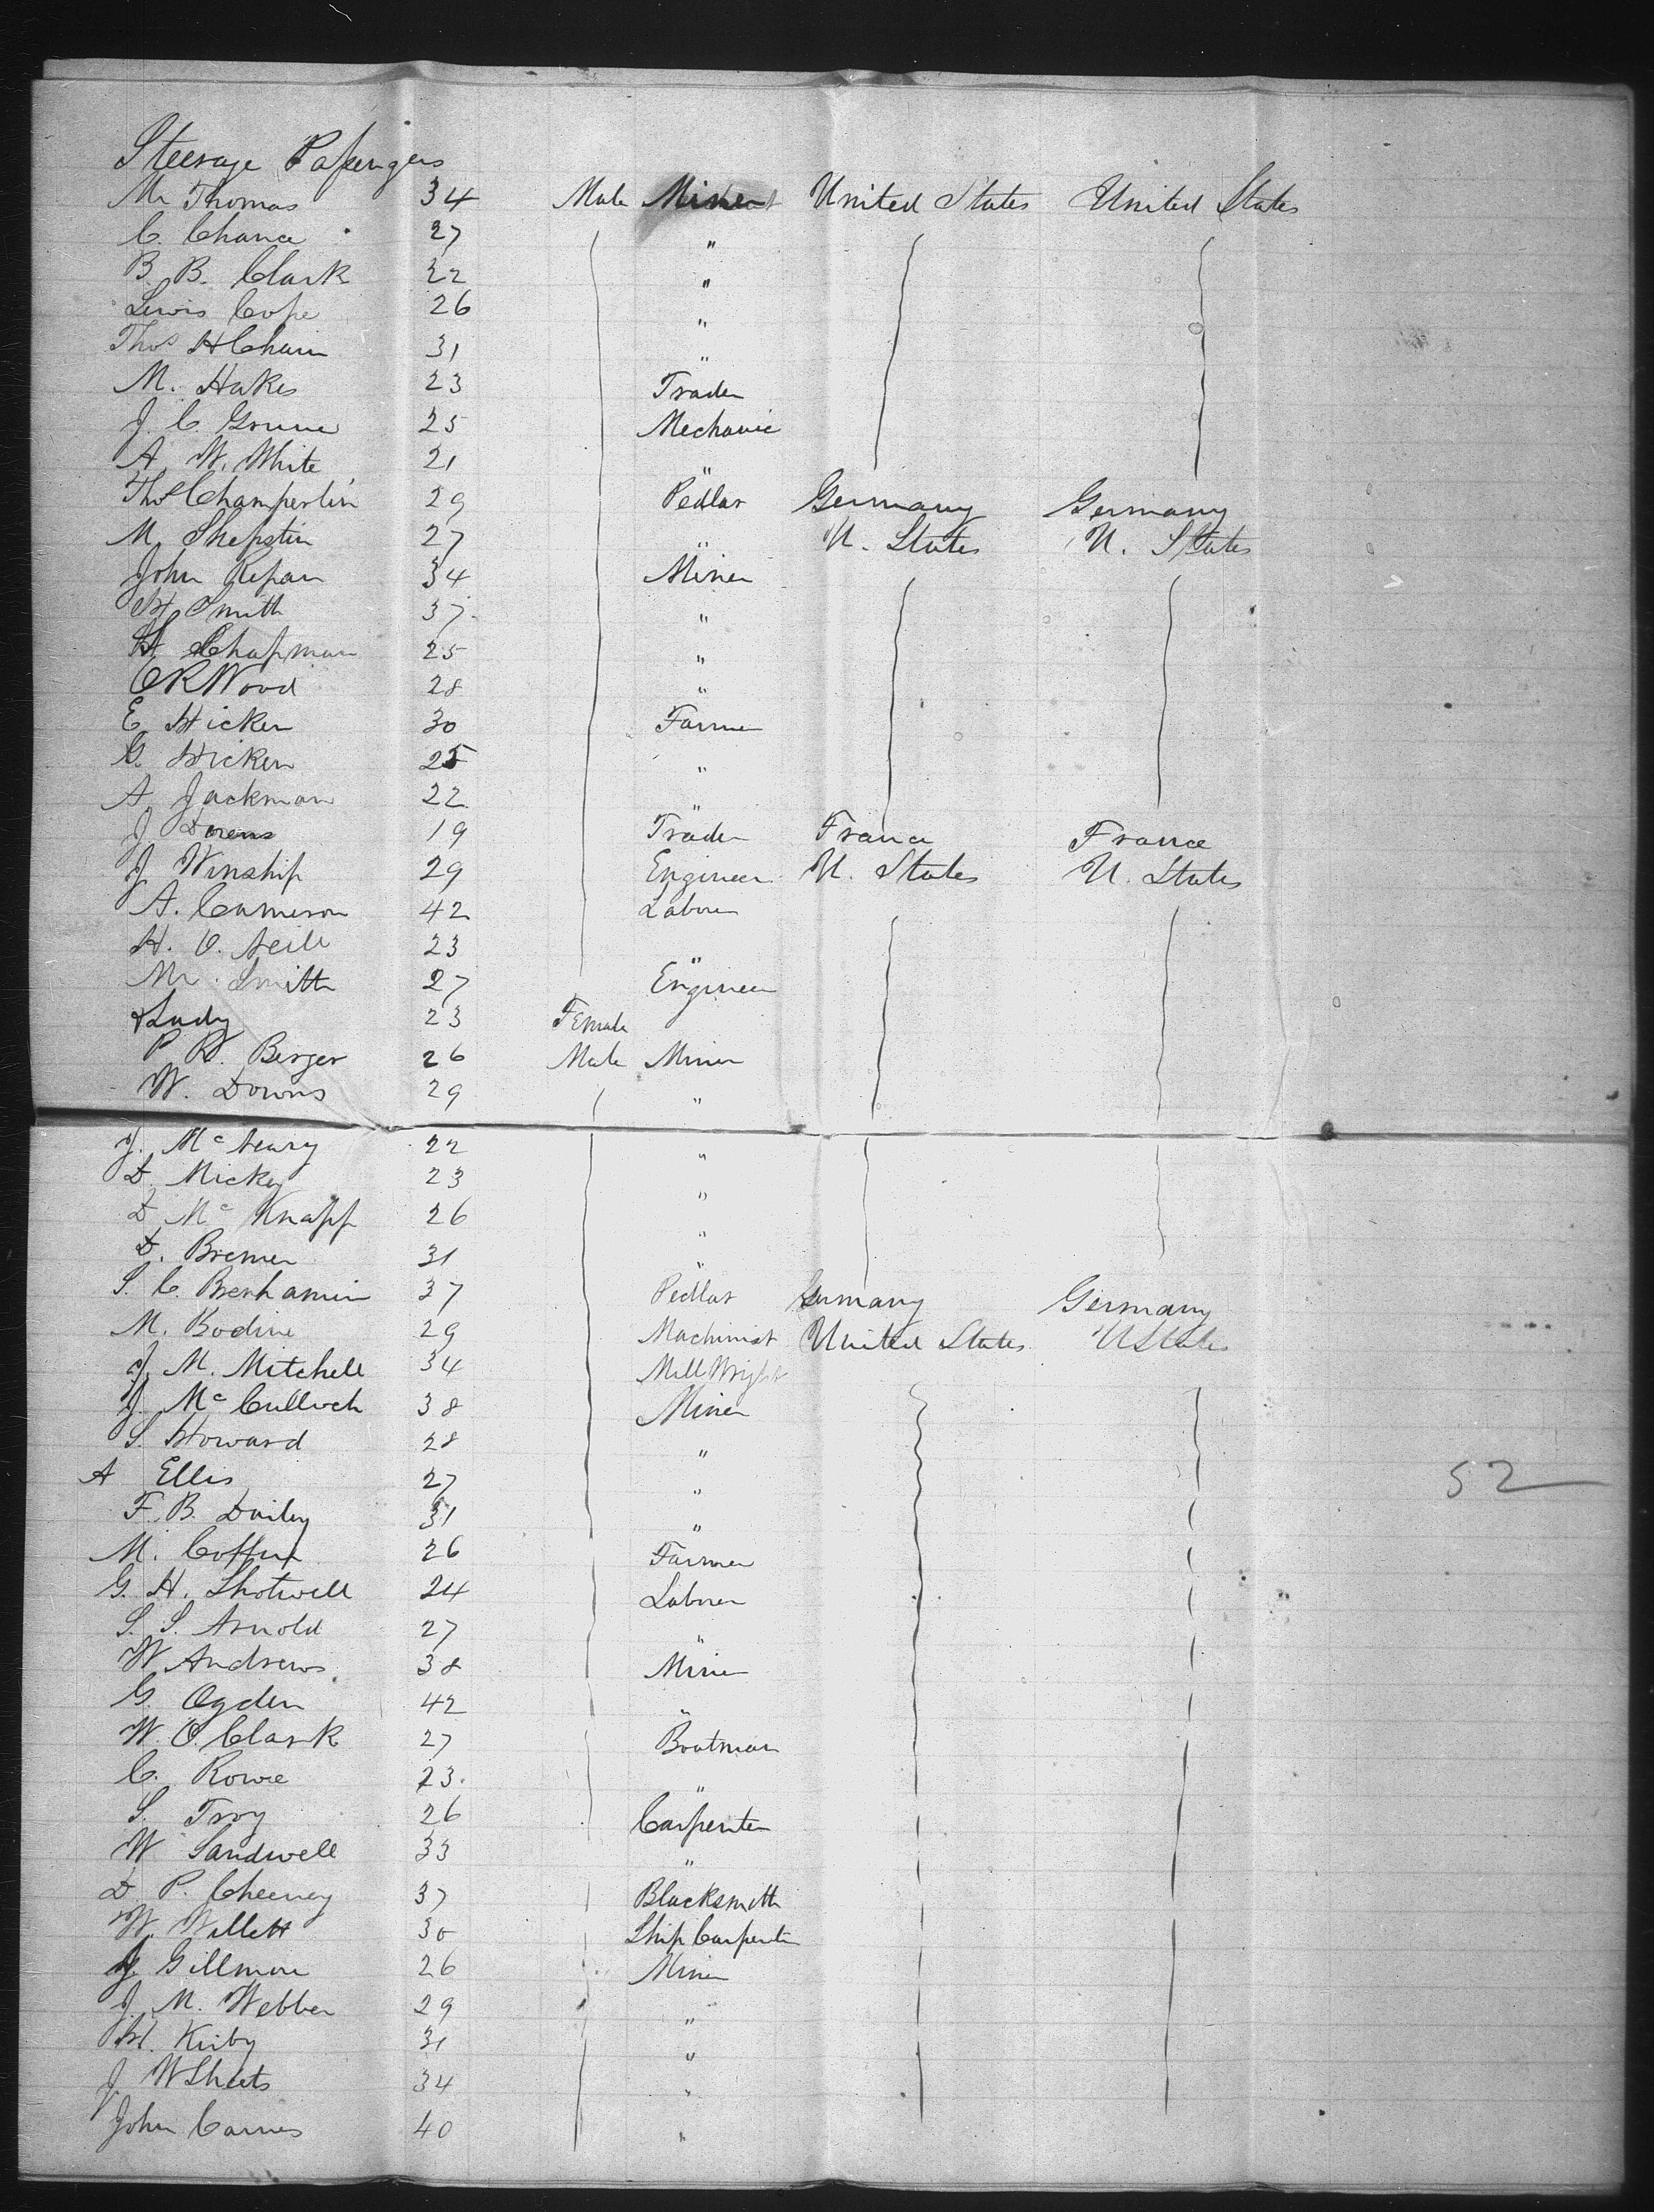 Steerage Passengers
Mr Thomas 34 Male Miner United States United States
C. Chance 27 "
B. B. Clark 22 "
Lewis Cope 26 "
Thos H Chain 31 "
M. Hakes 23 Trader
J. C. Grune 25 Mechanic
A. W. White 21 "
Thos Champerlin 29 Pedlar Germany Germany
M. Shepstin 27 " U. States U. States
John Repan 34 Miner
H. Smith 37 "
H. Chapman 25 "
O R Wood 28 "
E Hicken 30 Farmer
G. Hicken 25 "
A. Jackman 22 "
J 19 Trader France France
J Winship 29 Engineer U. States U. States
A. Cameron 42 Laborer
H. O. Neill 23 "
Mr. Smith 27 Engineer
& Lady 23 Female
P. R. Berger 26 Male Miner
W. Downs 29 "
J. Mc Neury 22 "
D. Mickey 23 "
D. Mc Knapp 26 "
D. Bremer 31 "
S. C. Benhamin 37 Pedlar Germany Germany
M. Bodine 29 Machinist United States U States
J. M. Mitchell 34 Mill Wright
J. Mc Culloch 38 Miner
S. Howard 28 "
A Ellis 27 "
F. B. Dailey 31 "
M. Coffin 26 Farmer
G. H. Shotwell 24 Laborer
S. S. Arnold 27 "
W Andrews 38 Miner
G. Ogden 42 "
W. O. Clark 27 Boatman
C. Rowe 23 "
S. Troy 26 Carpenter
W Sandwell 33 "
D. P. Cheeney 37 Blacksmith
W. Willett 30 Ship Carpenter
J. Gillmore 26 Miner
J. M. Webber 29 "
H. Kirby 31 "
J W Sheets 34 "
John Carnes 40 "
52